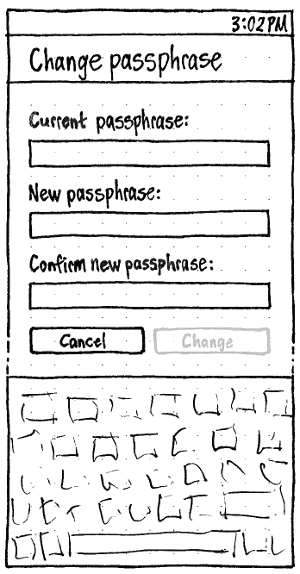 3:02PM
Change passphrase
Current passphrase:
New passphrase:
Confirm new passphrase:
Cancel Change